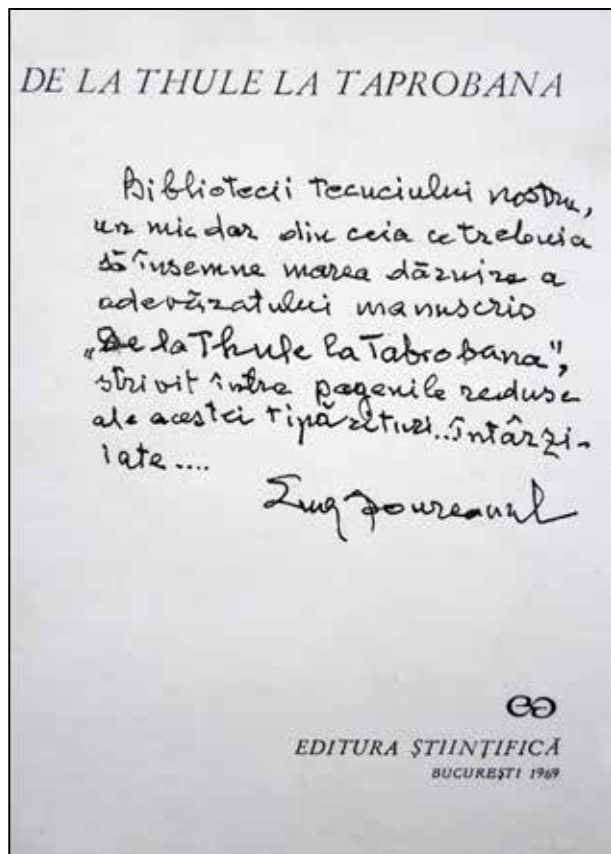 DE LA THULE LA TAPROBANA
Bibliotecii Tecuciului nostru,
un mic dar din ceia ce trebuia
să însemne marea dăruire a
adevăzatului manuscris
„De la Thule la Tabrobana",
strivit între pagenile reduse
ale acestei tipărituri..întârzi-
iate....
EDITURA ȘTIINȚIFICĂ
BUCUREȘTI 1969